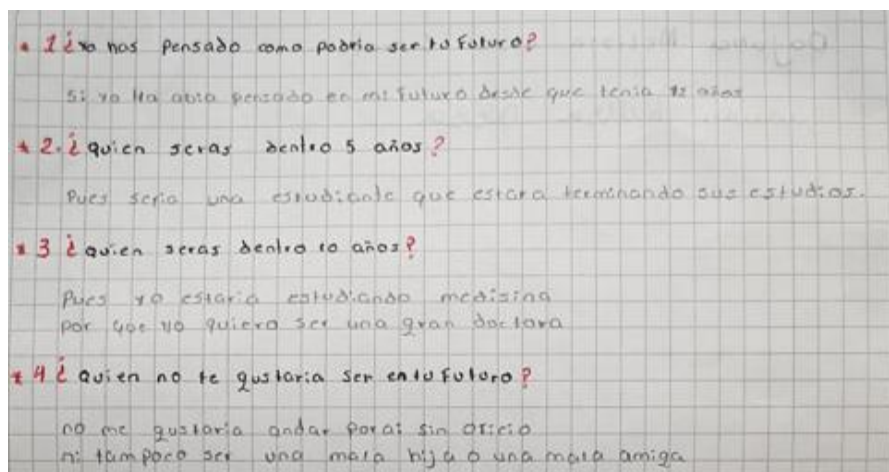 * 1 ¿ya has pensado como podria ser tu futuro?
si yo lla abia pensado en mi futuro desde que tenia 12 años
* 2. ¿quien seras dentro 5 años?
Pues seria una estudiante que estara terminando sus estudios.
* 3 ¿quien seras dentro 10 años?
Pues yo estaria estudiando medisina
por que yo quiero ser una gran doctora
* 4 ¿quien no te gustaria ser en tu futuro?
no me gustaria andar porai sin oficio
ni tampoco ser una mala hija o una mala amiga